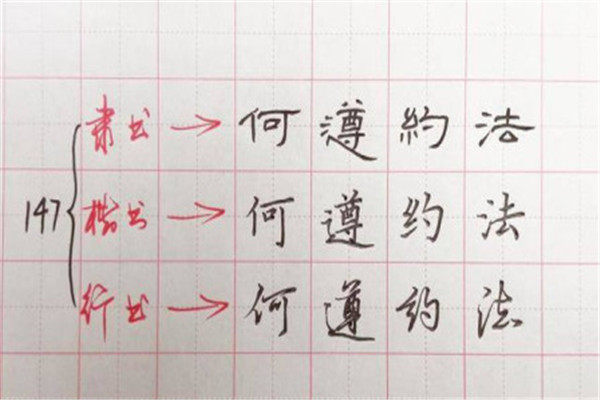 隶书 → 何遵約法
147 { 楷书 → 何遵约法
行书 → 何遵约法